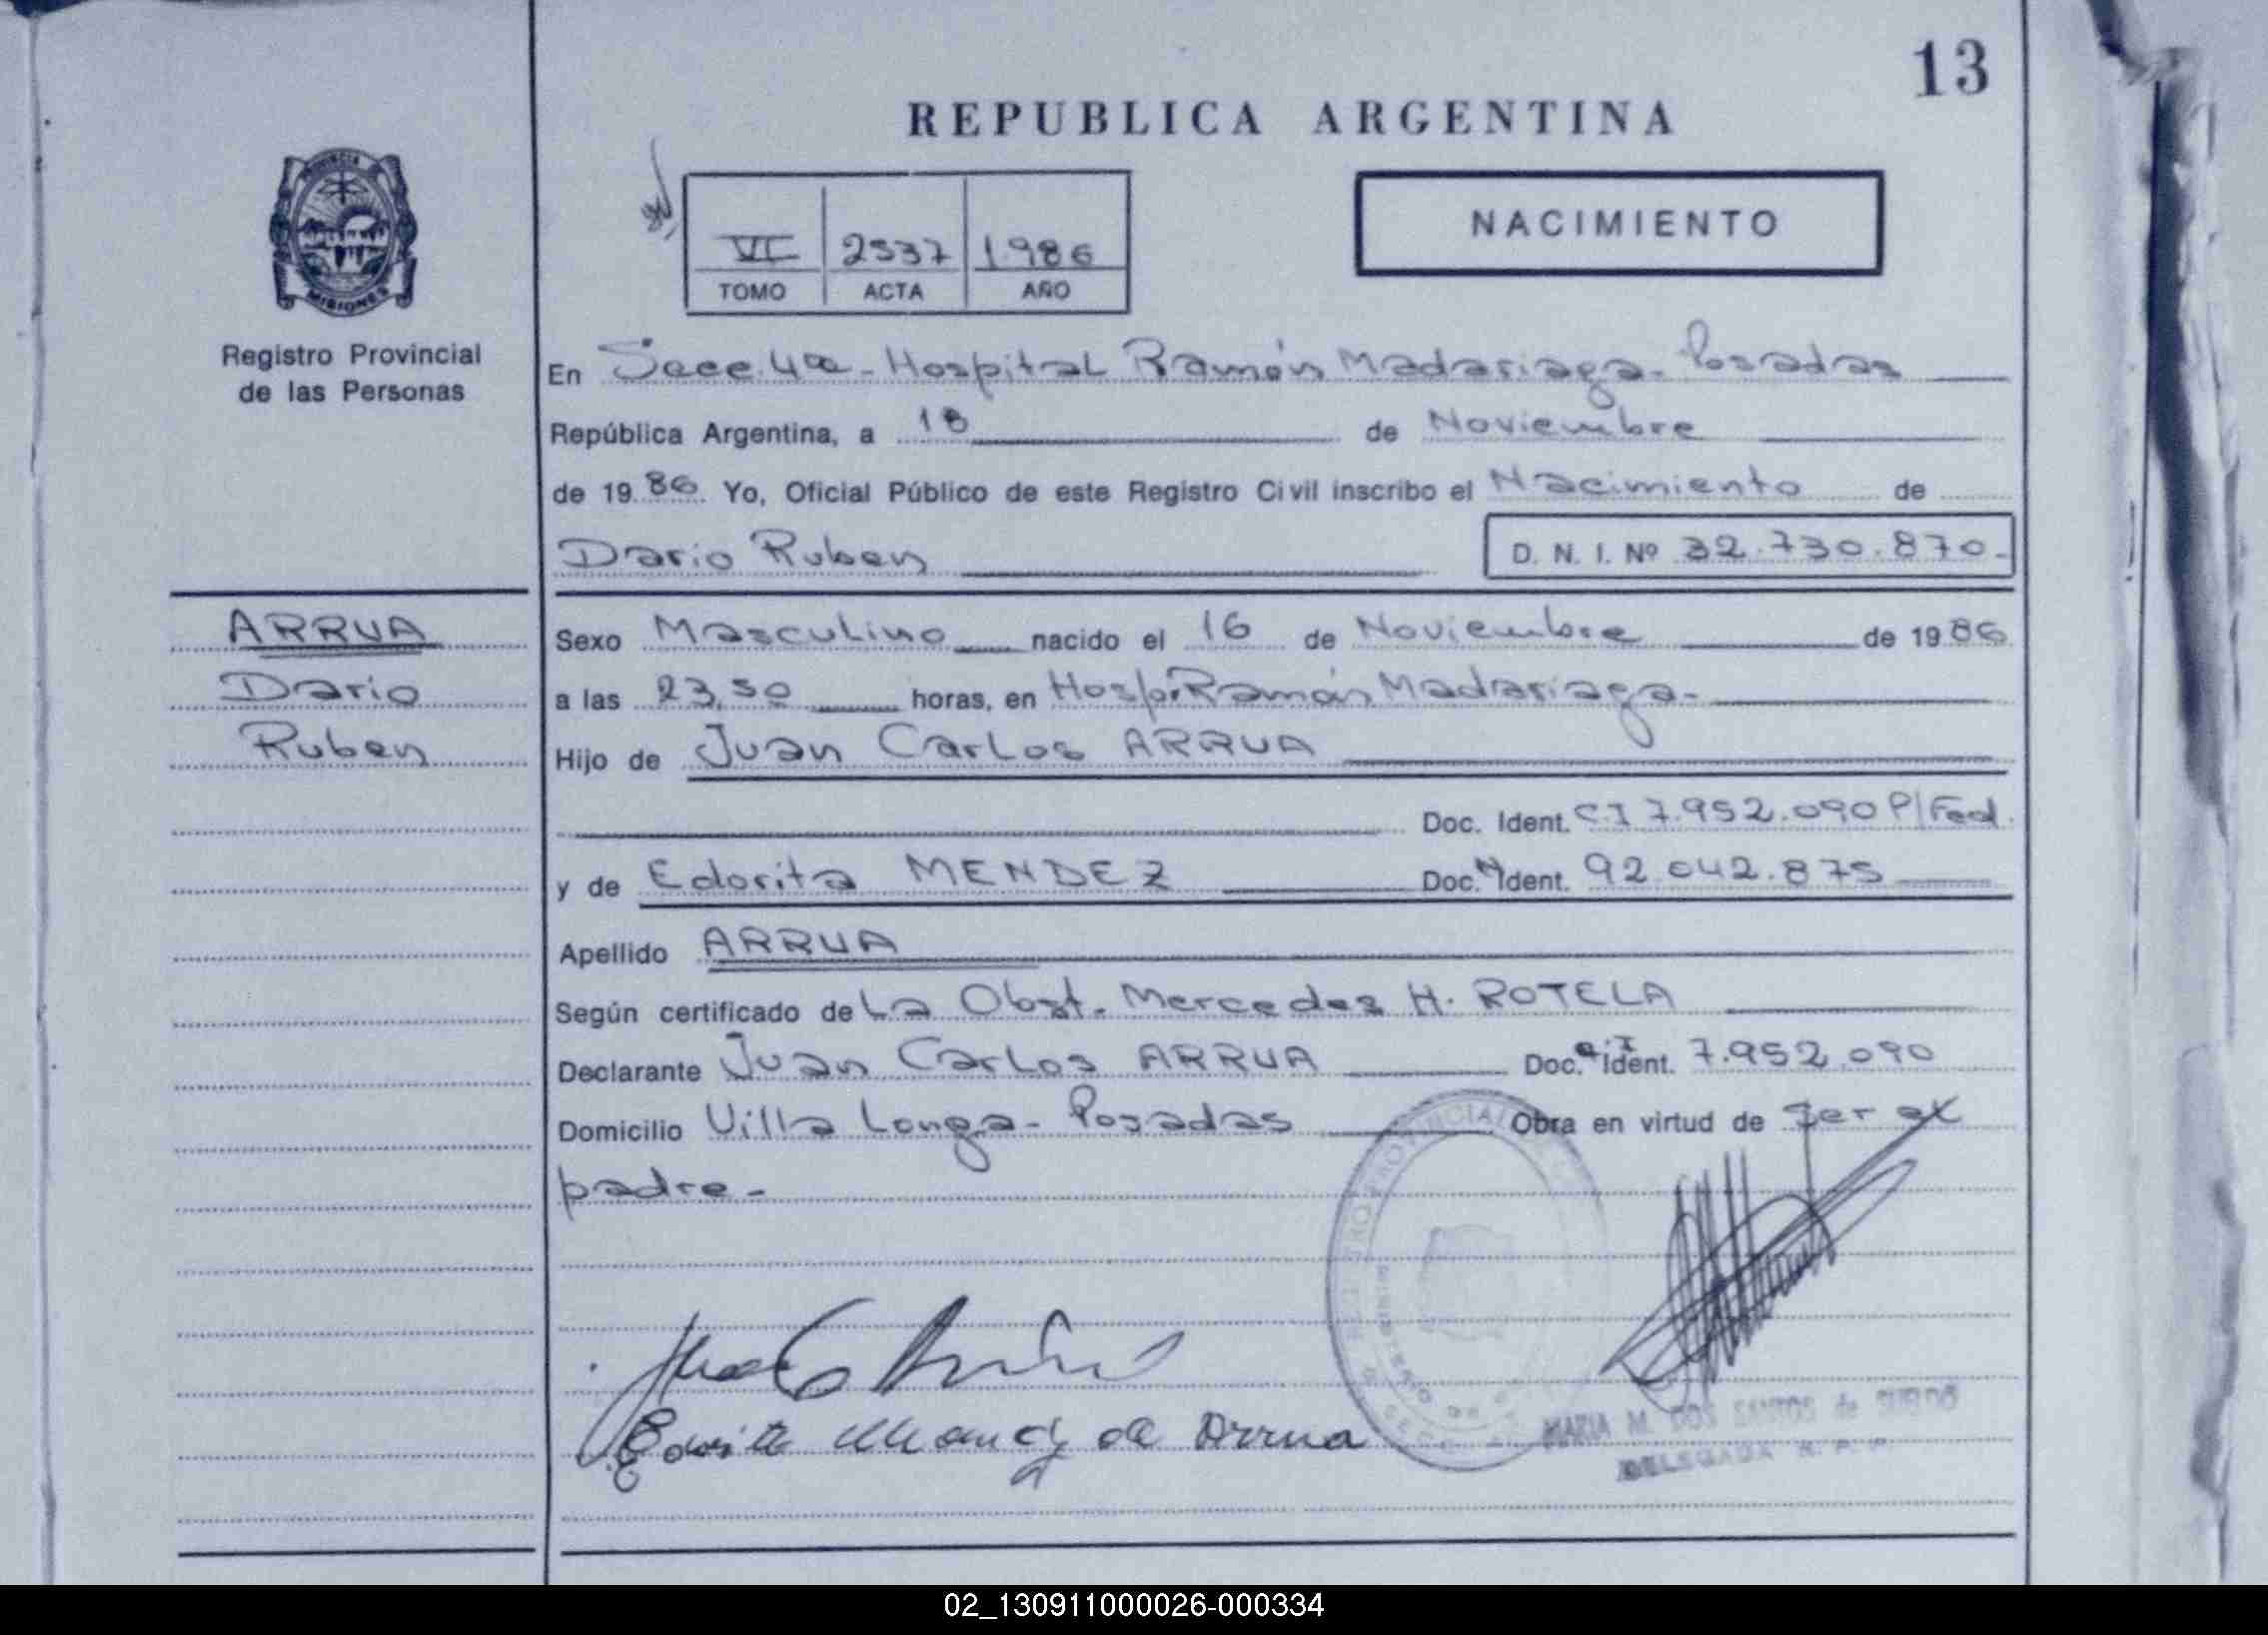 13
REPUBLICA ARGENTINA
PROVINCIA
MISIONES
Registro Provincial
de las Personas
VI 2537 1986
TOMO ACTA AÑO
NACIMIENTO
En Secc. 4ta - Hospital Ramón Madariaga - Posadas
República Argentina, a 18 de Noviembre
de 1986. Yo, Oficial Público de este Registro Civil inscribo el Nacimiento de
Dario Ruben D. N. I. Nº 32.730.870-
ARRUA
Dario
Ruben
Sexo Masculino nacido el 16 de Noviembre de 1986
a las 23,50 horas, en Hosp. Ramón Madariaga-
Hijo de Juan Carlos ARRUA
Doc. Ident. C.I 7.952.090 P/Fed.
y de Edorita MENDEZ Doc. Ident. 92.042.875
Apellido ARRUA
Según certificado de La Obst. Mercedes H. ROTELA
Declarante Juan Carlos ARRUA Doc. Ident. 7.952.090
Domicilio Villa Longa - Posadas Obra en virtud de ser el
padre-
de Arrua
MARIA M. DOS SANTOS de
DELEGADA R. P. P.
02_130911000026-000334